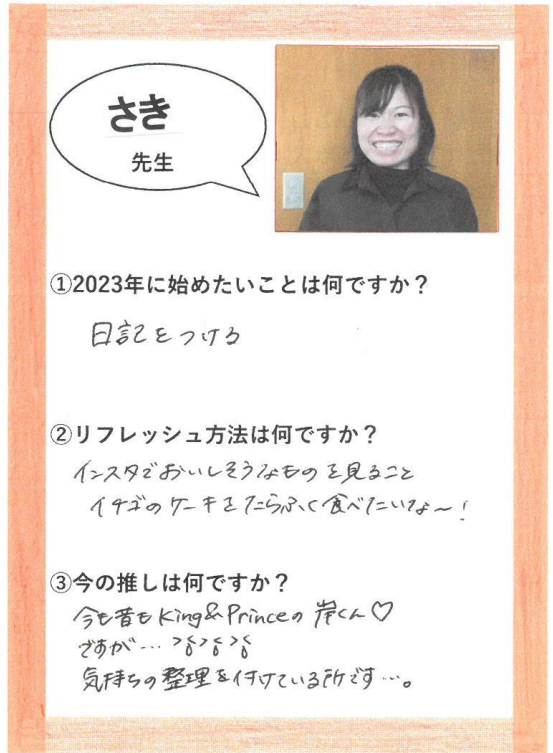 さき
先生
①2023年に始めたいことは何ですか？
日記をつける
②リフレッシュ方法は何ですか？
インスタでおいしそうなものを見ること
イチゴのケーキをたらふく食べたいな～！
③今の推しは何ですか？
今も昔もKing&Princeの岸くん♡
ですが…
気持ちの整理を付けている所です…。